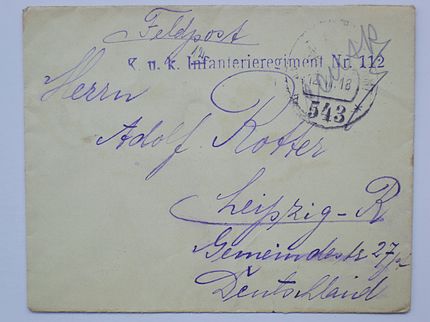 Feldpost
k. u. k. Infanterieregiment Nr. 112
543
Herrn
Adolf Rotter
Leipzig-R
Gemeindestr 27
Deutschland